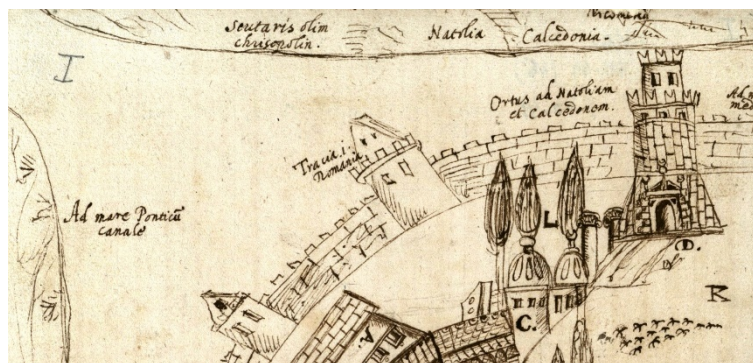 Scutaris olim
chrisopolin.
Natolia
Calcedonia.
I
Ortus ad Natoliam
et Calcedonem.
Tracia. i.
Romania
Ad mare Ponticũ
canale
L.
D.
R
C.
A.